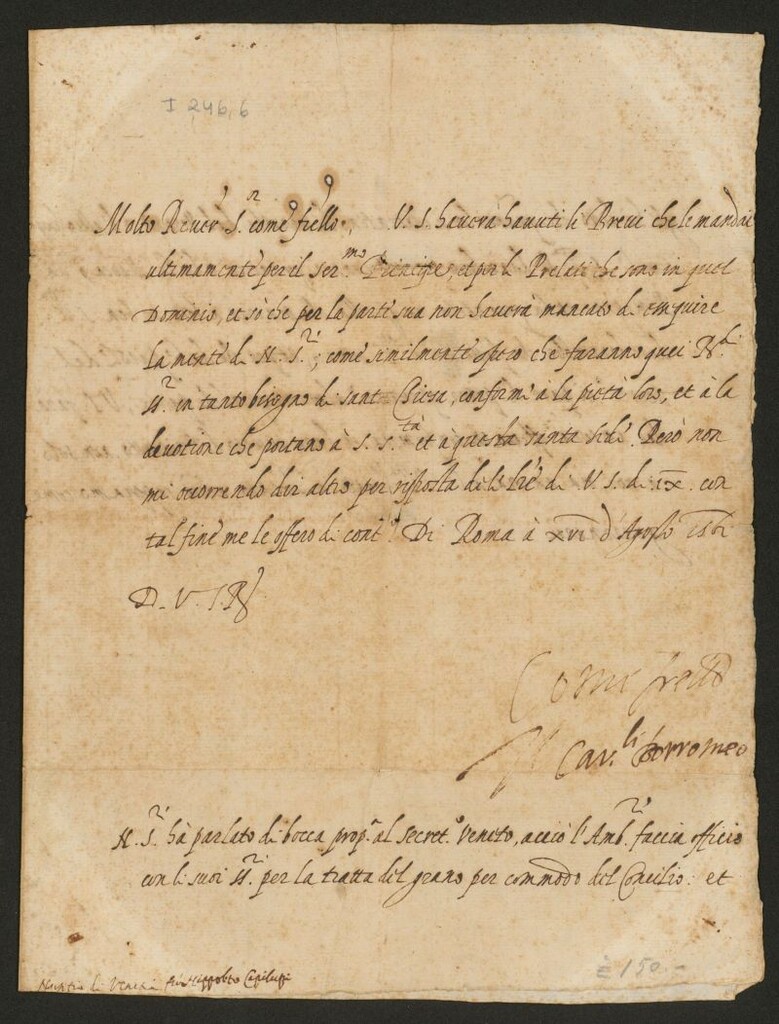 I 246,6
Molto Rever.do S.r come fr̃ello. V. S. haverà havuti li Brevi che le mandai
ultimamente per il Ser.mo Principe, et per li Prelati che sono in quel
Dominio, et sò che per la parte sua non haverà mancato di esseguire
la mente di N. S.re; come similmente spero che faranno quei R.di
S.ri in tanto bisogno di santa Chiesa, conforme à la pietà loro, et à la
devotione che portano à S. S.tà et à questa santa Sede. Però non
mi occorrendo dir altro per risposta de le lr̃e di V. S. di ix. con
tal fine me le offero di cont.o Di Roma à xvi d'Agosto 1561
D. V. S. R.
Come fratello
Il Car.li Borromeo
N. S.re hà parlato di bocca prop.a al Secret.o Veneto, acciò l'Amb.re faccia officio
con li suoi S.ri per la tratta del grano per commodo del Concilio: et
Nuntio di Venetia Hippolito Capilupi
150.-